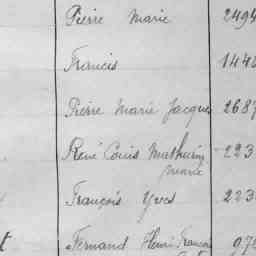 Pierre Marie 2494
Francis 144
Pierre Marie Jacques 2687
René Louis Mathurin 223
Marie
François Yves 223
t Fernand Henri François 97